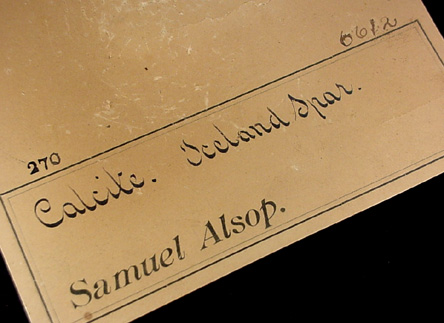 6612
270
Calcite. Iceland Spar.
Samuel Alsop.